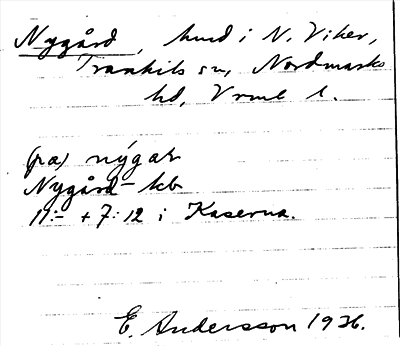 Nygård, hmd i N. Viker,
Trankils sn, Nordmarks
hd, Vrml l.
(pa) nýgaʀ
Nygård - kb
11:- + 7:12 i Kaserna.
E. Andersson 1936.